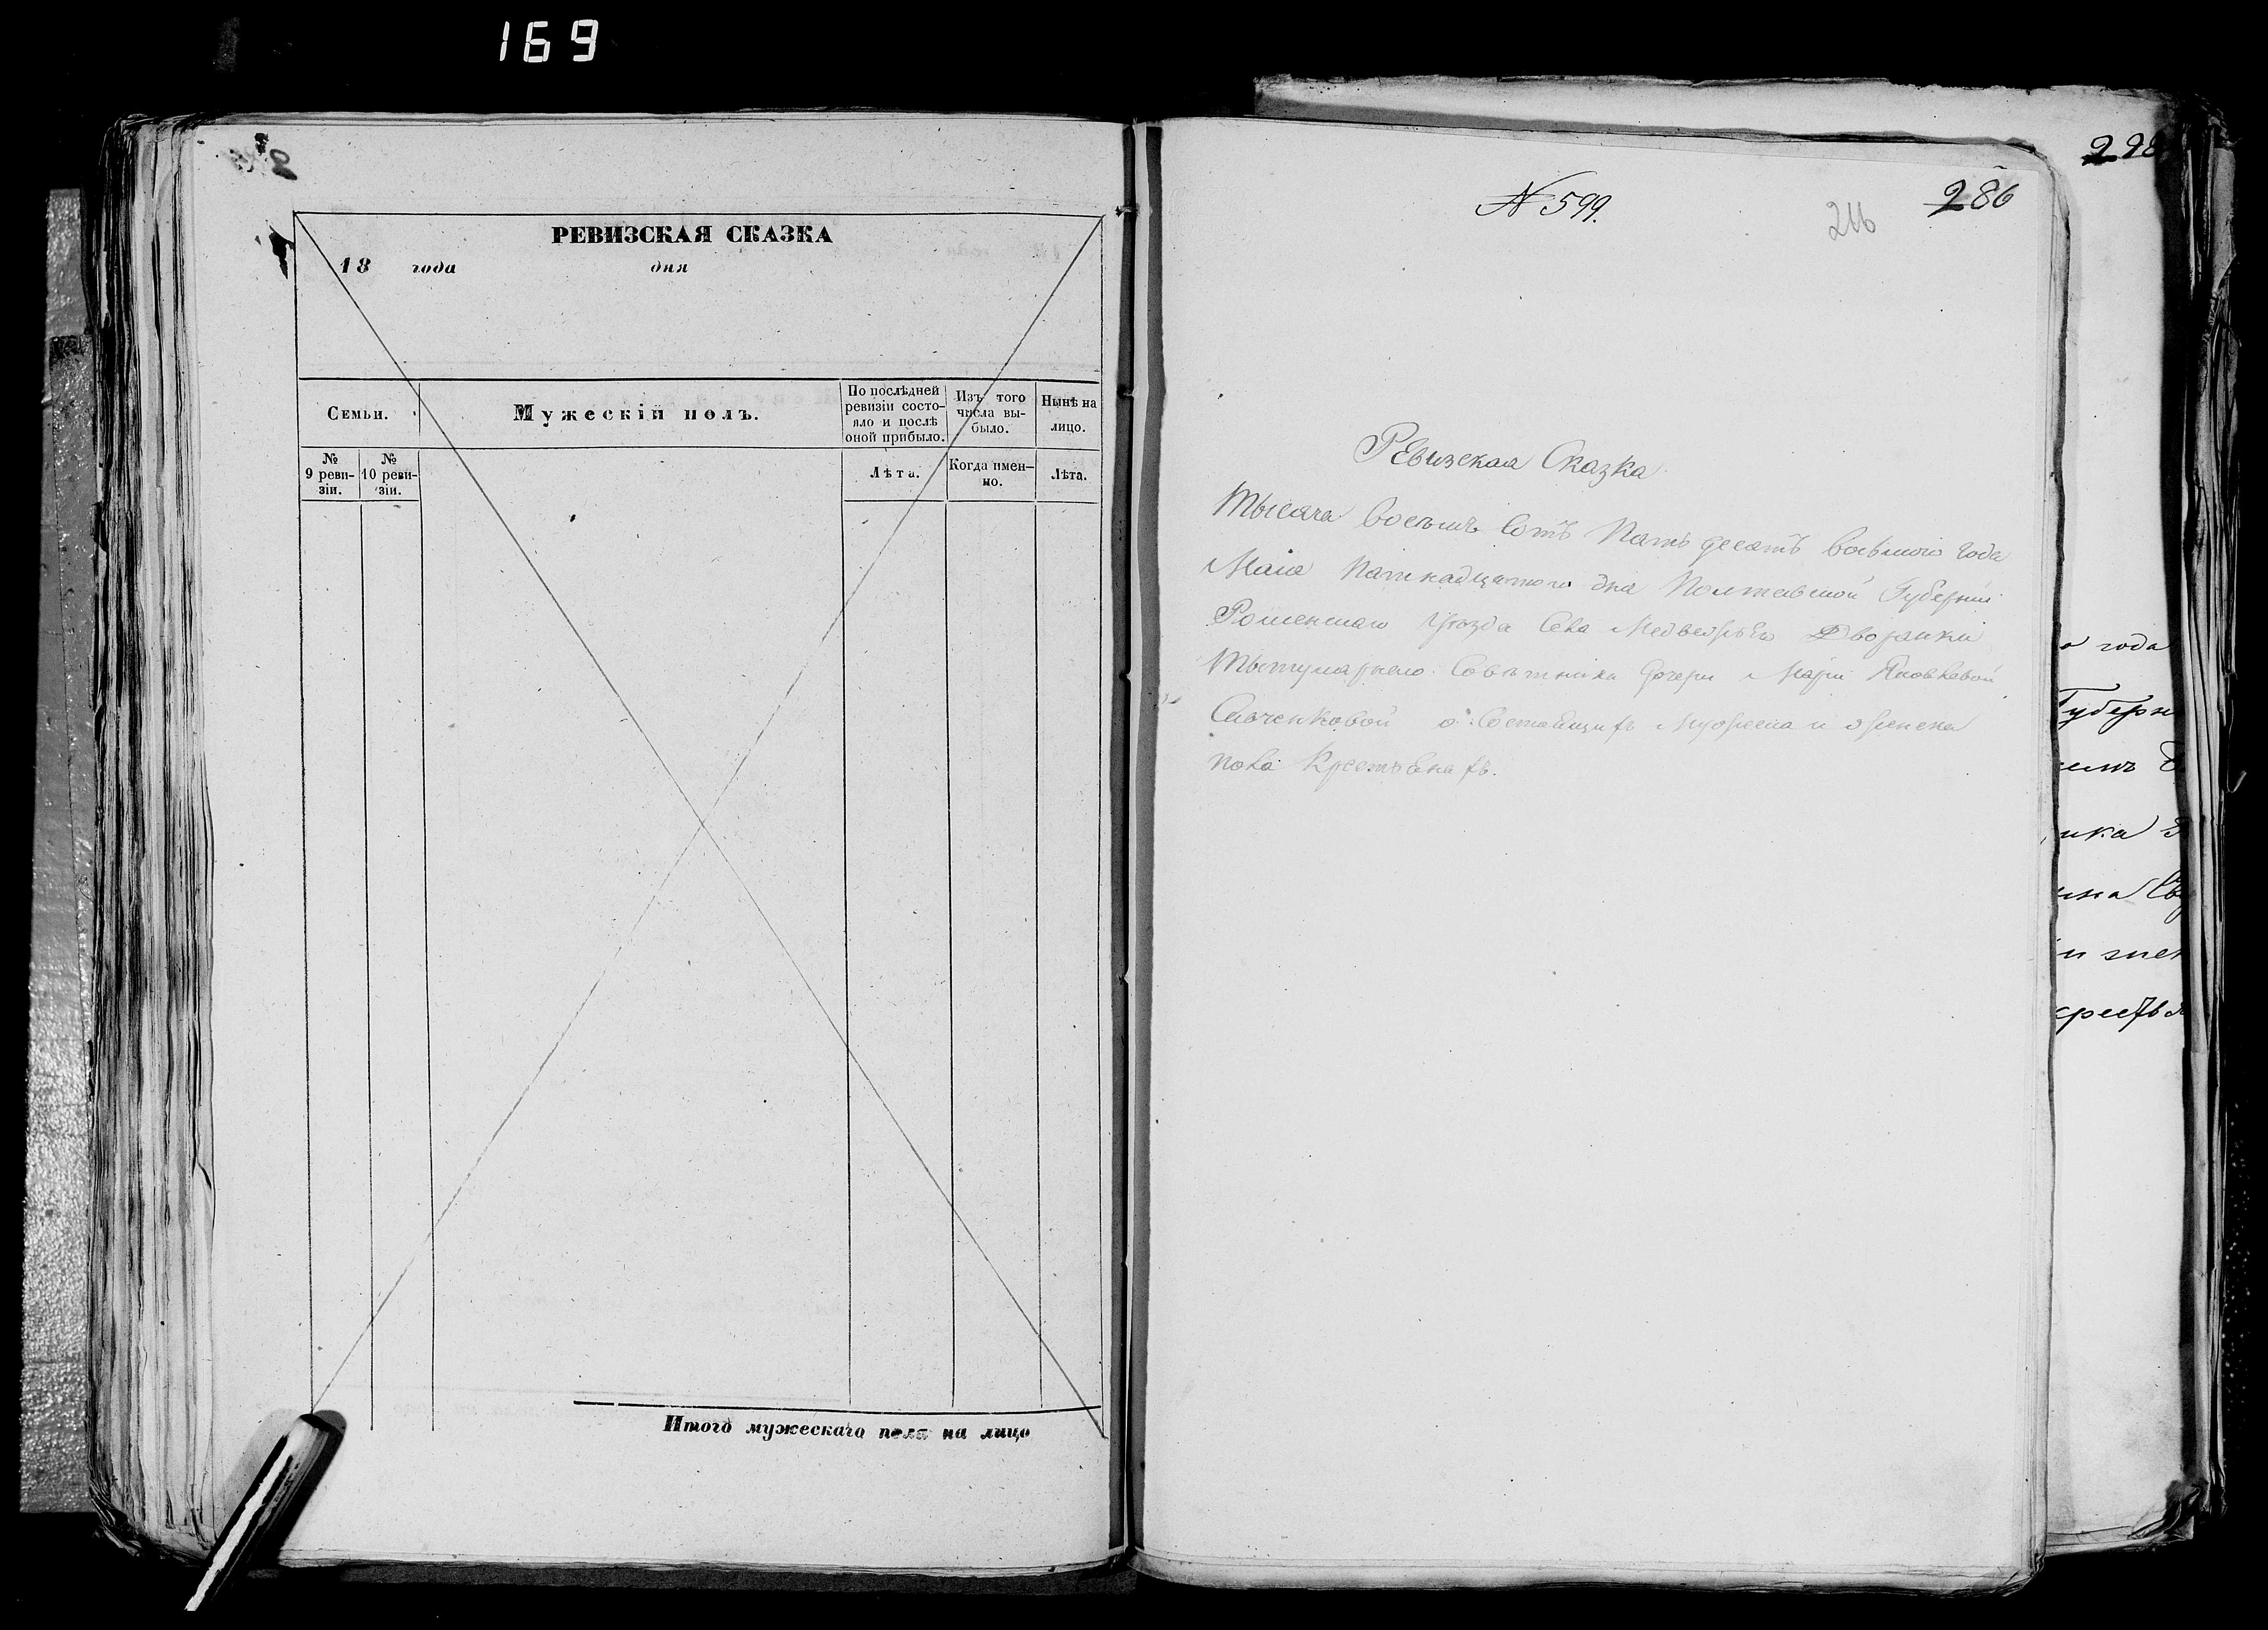 169
РЕВИЗСКАЯ СКАЗКА
18 года дня
Семьи.
Мужескій полъ.
По послѣдней ревизіи состо-
яло и послѣ оной прибыло.
Изъ того числа вы-
было.
Нынѣ на лицо.
№ 9 реви-
зіи.
№ 10 реви-
зіи.
Лѣта.
Когда имен-
но.
Лѣта.
Итого мужескаго пола на лицо
N 599.
286
Ревизская Сказка
Тысяча восемь Сотъ Пять десятъ восьмого года
Маія Пятнадцатого дня Полтавской Губерніи
Роменскаго Уѣзда Села Медвежьего Дворянки
Тытулярнего Совѣтника дочери Маріи Яковлевой
Савченковой о Состоящихъ Мужеска и женска
пола Крестьянахъ.
298
о года
Губерн
ика
и жен